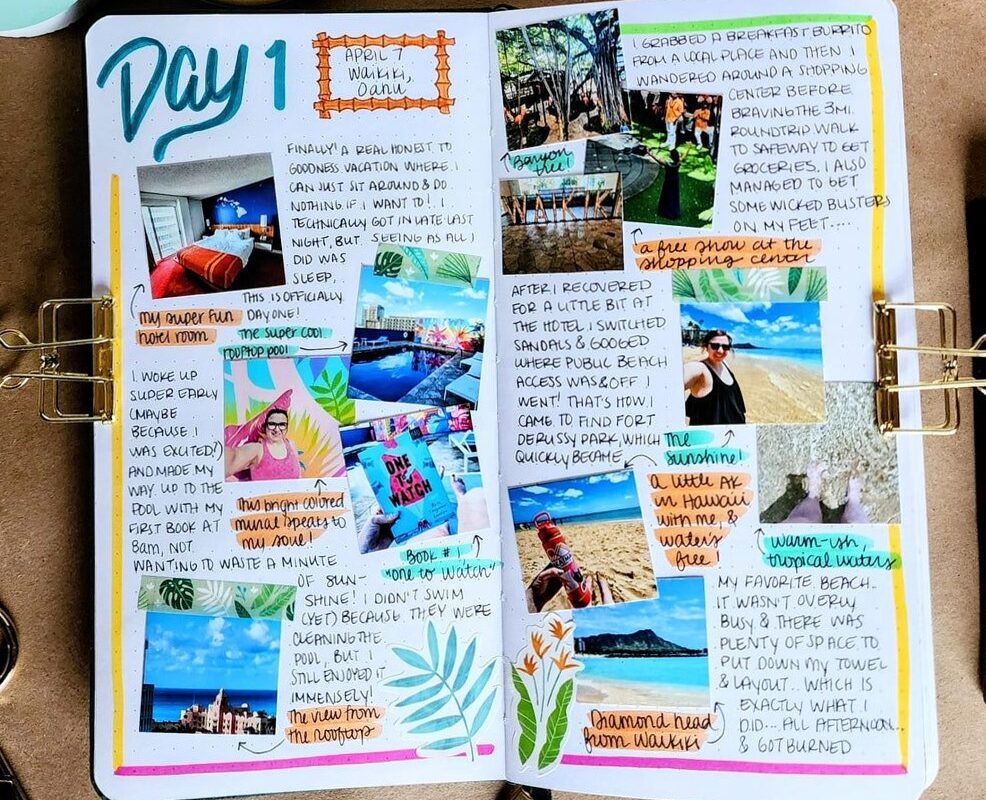 Day 1
APRIL 7
Waikiki,
Oahu
FINALLY! A REAL HONEST TO
GOODNESS VACATION WHERE I
CAN JUST SIT AROUND & DO
NOTHING IF I WANT TO! I
TECHNICALLY GOT IN LATE LAST
NIGHT, BUT SEEING AS ALL I
DID WAS
SLEEP,
THIS IS OFFICIALLY
DAY ONE!
my super fun
hotel room
The super cool
rooftop pool
I WOKE UP
SUPER EARLY
(MAYBE
BECAUSE I
WAS EXCITED!)
AND MADE MY
WAY UP TO THE
POOL WITH MY
FIRST BOOK AT
8am, NOT
WANTING TO WASTE A MINUTE
OF SUN-
SHINE! I DIDN'T SWIM
(YET) BECAUSE THEY WERE
CLEANING THE
POOL, BUT I
STILL ENJOYED IT
IMMENSELY!
This bright colored
mural speaks to
my soul!
ONE
TO
WATCH
BOOK #1,
"one to watch"
The view from
the rooftop
I GRABBED A BREAKFAST BURRITO
FROM A LOCAL PLACE AND THEN I
WANDERED AROUND A SHOPPING
CENTER BEFORE
BRAVING THE 3MI.
ROUNDTRIP WALK
TO SAFEWAY TO GET
GROCERIES. I ALSO
MANAGED TO GET
SOME WICKED BLISTERS
ON MY FEET....
Banyon
tree!
a free show at the
shopping center
AFTER I RECOVERED
FOR A LITTLE BIT AT
THE HOTEL I SWITCHED
SANDALS & GOOGED
WHERE PUBLIC BEACH
ACCESS WAS & OFF I
WENT! THAT'S HOW I
CAME TO FIND FORT
DERUSSY PARK, WHICH
QUICKLY BECAME
The
Sunshine!
a little AK
in Hawaii
with me, &
water's
free!
warm-ish,
tropical waters
MY FAVORITE BEACH.
IT WASN'T OVERLY
BUSY & THERE WAS
PLENTY OF SPACE TO
PUT DOWN MY TOWEL
& LAYOUT.. WHICH IS
EXACTLY WHAT I
DID... ALL AFTERNOON..
& GOT BURNED
Diamond head
from Waikiki